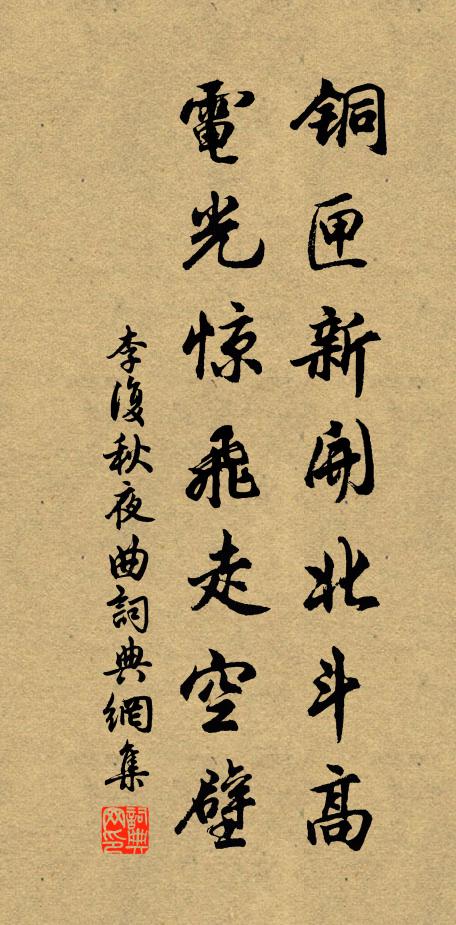 铜匣新開北斗髙
電光惊飛走空壁
李復秋夜曲詞典網集
詞典网印